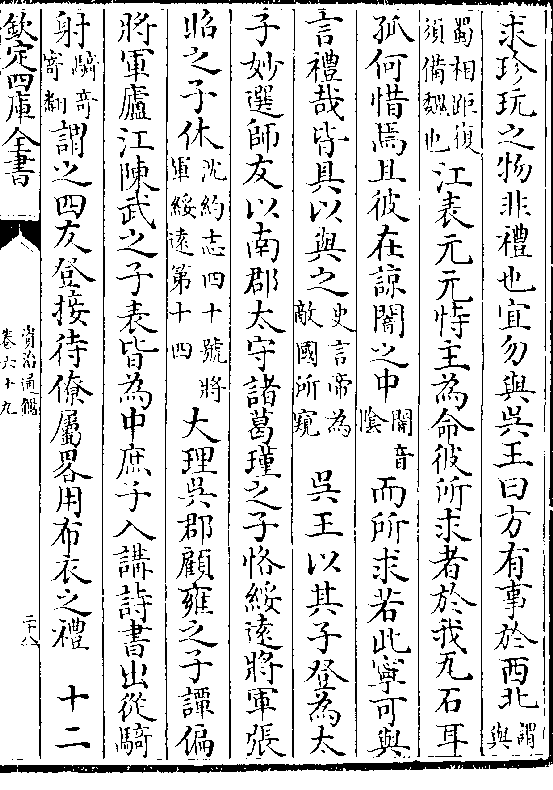 求珍玩之物非禮也宜勿與吳王曰方有事於西北謂與
蜀相距復須備魏也江表元元恃主為命彼所求者於我瓦石耳
孤何惜焉且彼在諒闇之中闇音陰而所求若此寧可與
言禮哉皆具以與之史言帝為敵國所窺吳王以其子登為太
子妙選師友以南郡太守諸葛瑾之子恪綏遠將軍張
昭之子休沈約志四十號將軍綏遠第十四大理吳郡顧雍之子譚偏
將軍廬江陳武之子表皆為中庶子入講詩書出從騎
射騎奇寄翻謂之四友登接待僚屬畧用布衣之禮 十二
欽定四庫全書
資治通鑑
卷六十九
二十八